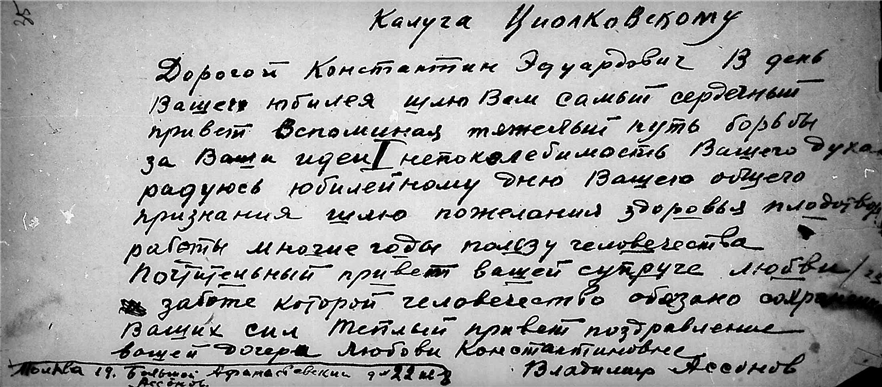 35
Калуга Циолковскому
Дорогой Константин Эдуардович В день
Вашего юбилея шлю Вам самый сердечный
привет Вспоминая тяжелый путь борьбы
за Ваши идеи непоколебимость Вашего духа
радуюсь юбилейному дню Вашего общего
признания шлю пожелания здоровья плодотвор
работы многие годы пользу человечества
Почтительный привет вашей супруге любви
заботе которой человечество обязано сохранени
Ваших сил Теплый привет поздравление
вашей дочери Любови Константиновне
Владимир Ассонов
Москва 19. Большой Афанасьевский д 22 кв 8
Ассонов